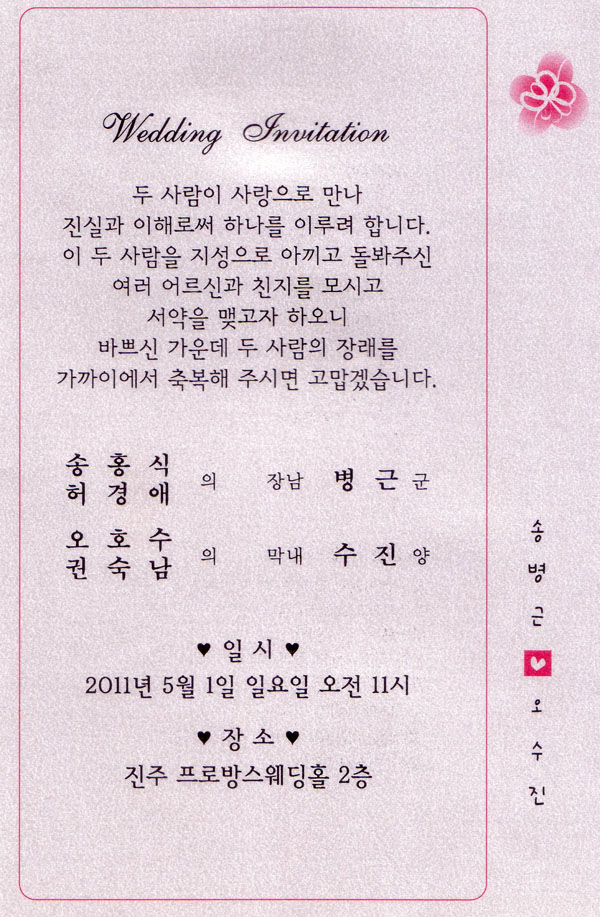 Wedding Invitation
두 사람이 사랑으로 만나
진실과 이해로써 하나를 이루려 합니다.
이 두 사람을 지성으로 아끼고 돌봐주신
여러 어르신과 친지를 모시고
서약을 맺고자 하오니
바쁘신 가운데 두 사람의 장래를
가까이에서 축복해 주시면 고맙겠습니다.
송 홍 식
허 경 애 의 장남 병 근 군
오 호 수
권 숙 남 의 막내 수 진 양
♥ 일 시 ♥
2011년 5월 1일 일요일 오전 11시
♥ 장 소 ♥
진주 프로방스웨딩홀 2층
송병근 ♥ 오수진